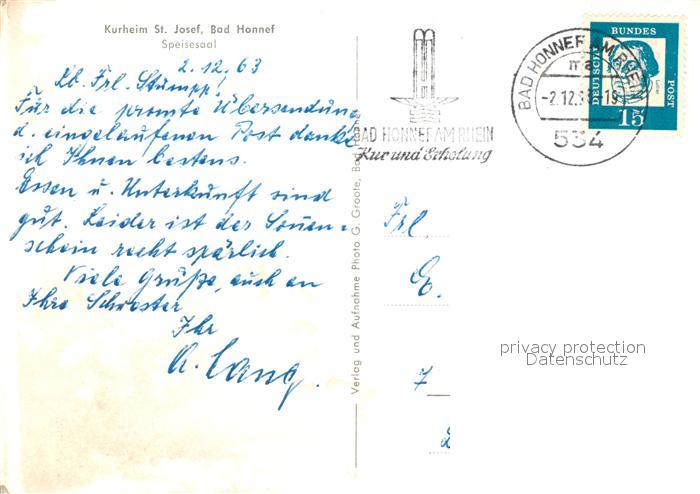 Kurheim St. Josef, Bad Honnef
Speisesaal
2.12.63
Lb. Frl. Stumpp!
Für die promte Übersendung
d. eingelaufenen Post danke
ich Ihnen bestens.
Essen u. Unterkunft sind
gut. Leider ist der Sonnen-
schein recht spärlich.
Viele Grüße, auch an
Ihre Schwester
Ihr
A. Lang.
Verlag und Aufnahme Photo G. Groote, Bad Honnef
BAD HONNEF AM RHEIN
Kur und Erholung
BAD HONNEF AM RHEIN
-2.12.
534
DEUTSCHE
BUNDES
POST
15
Frl.
E.
7
privacy protection
Datenschutz